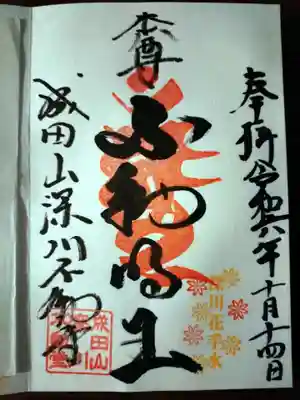 奉拝 令和六年十月十四日
本尊
不動明王
成田山深川不動尊
深川花手水
成田山